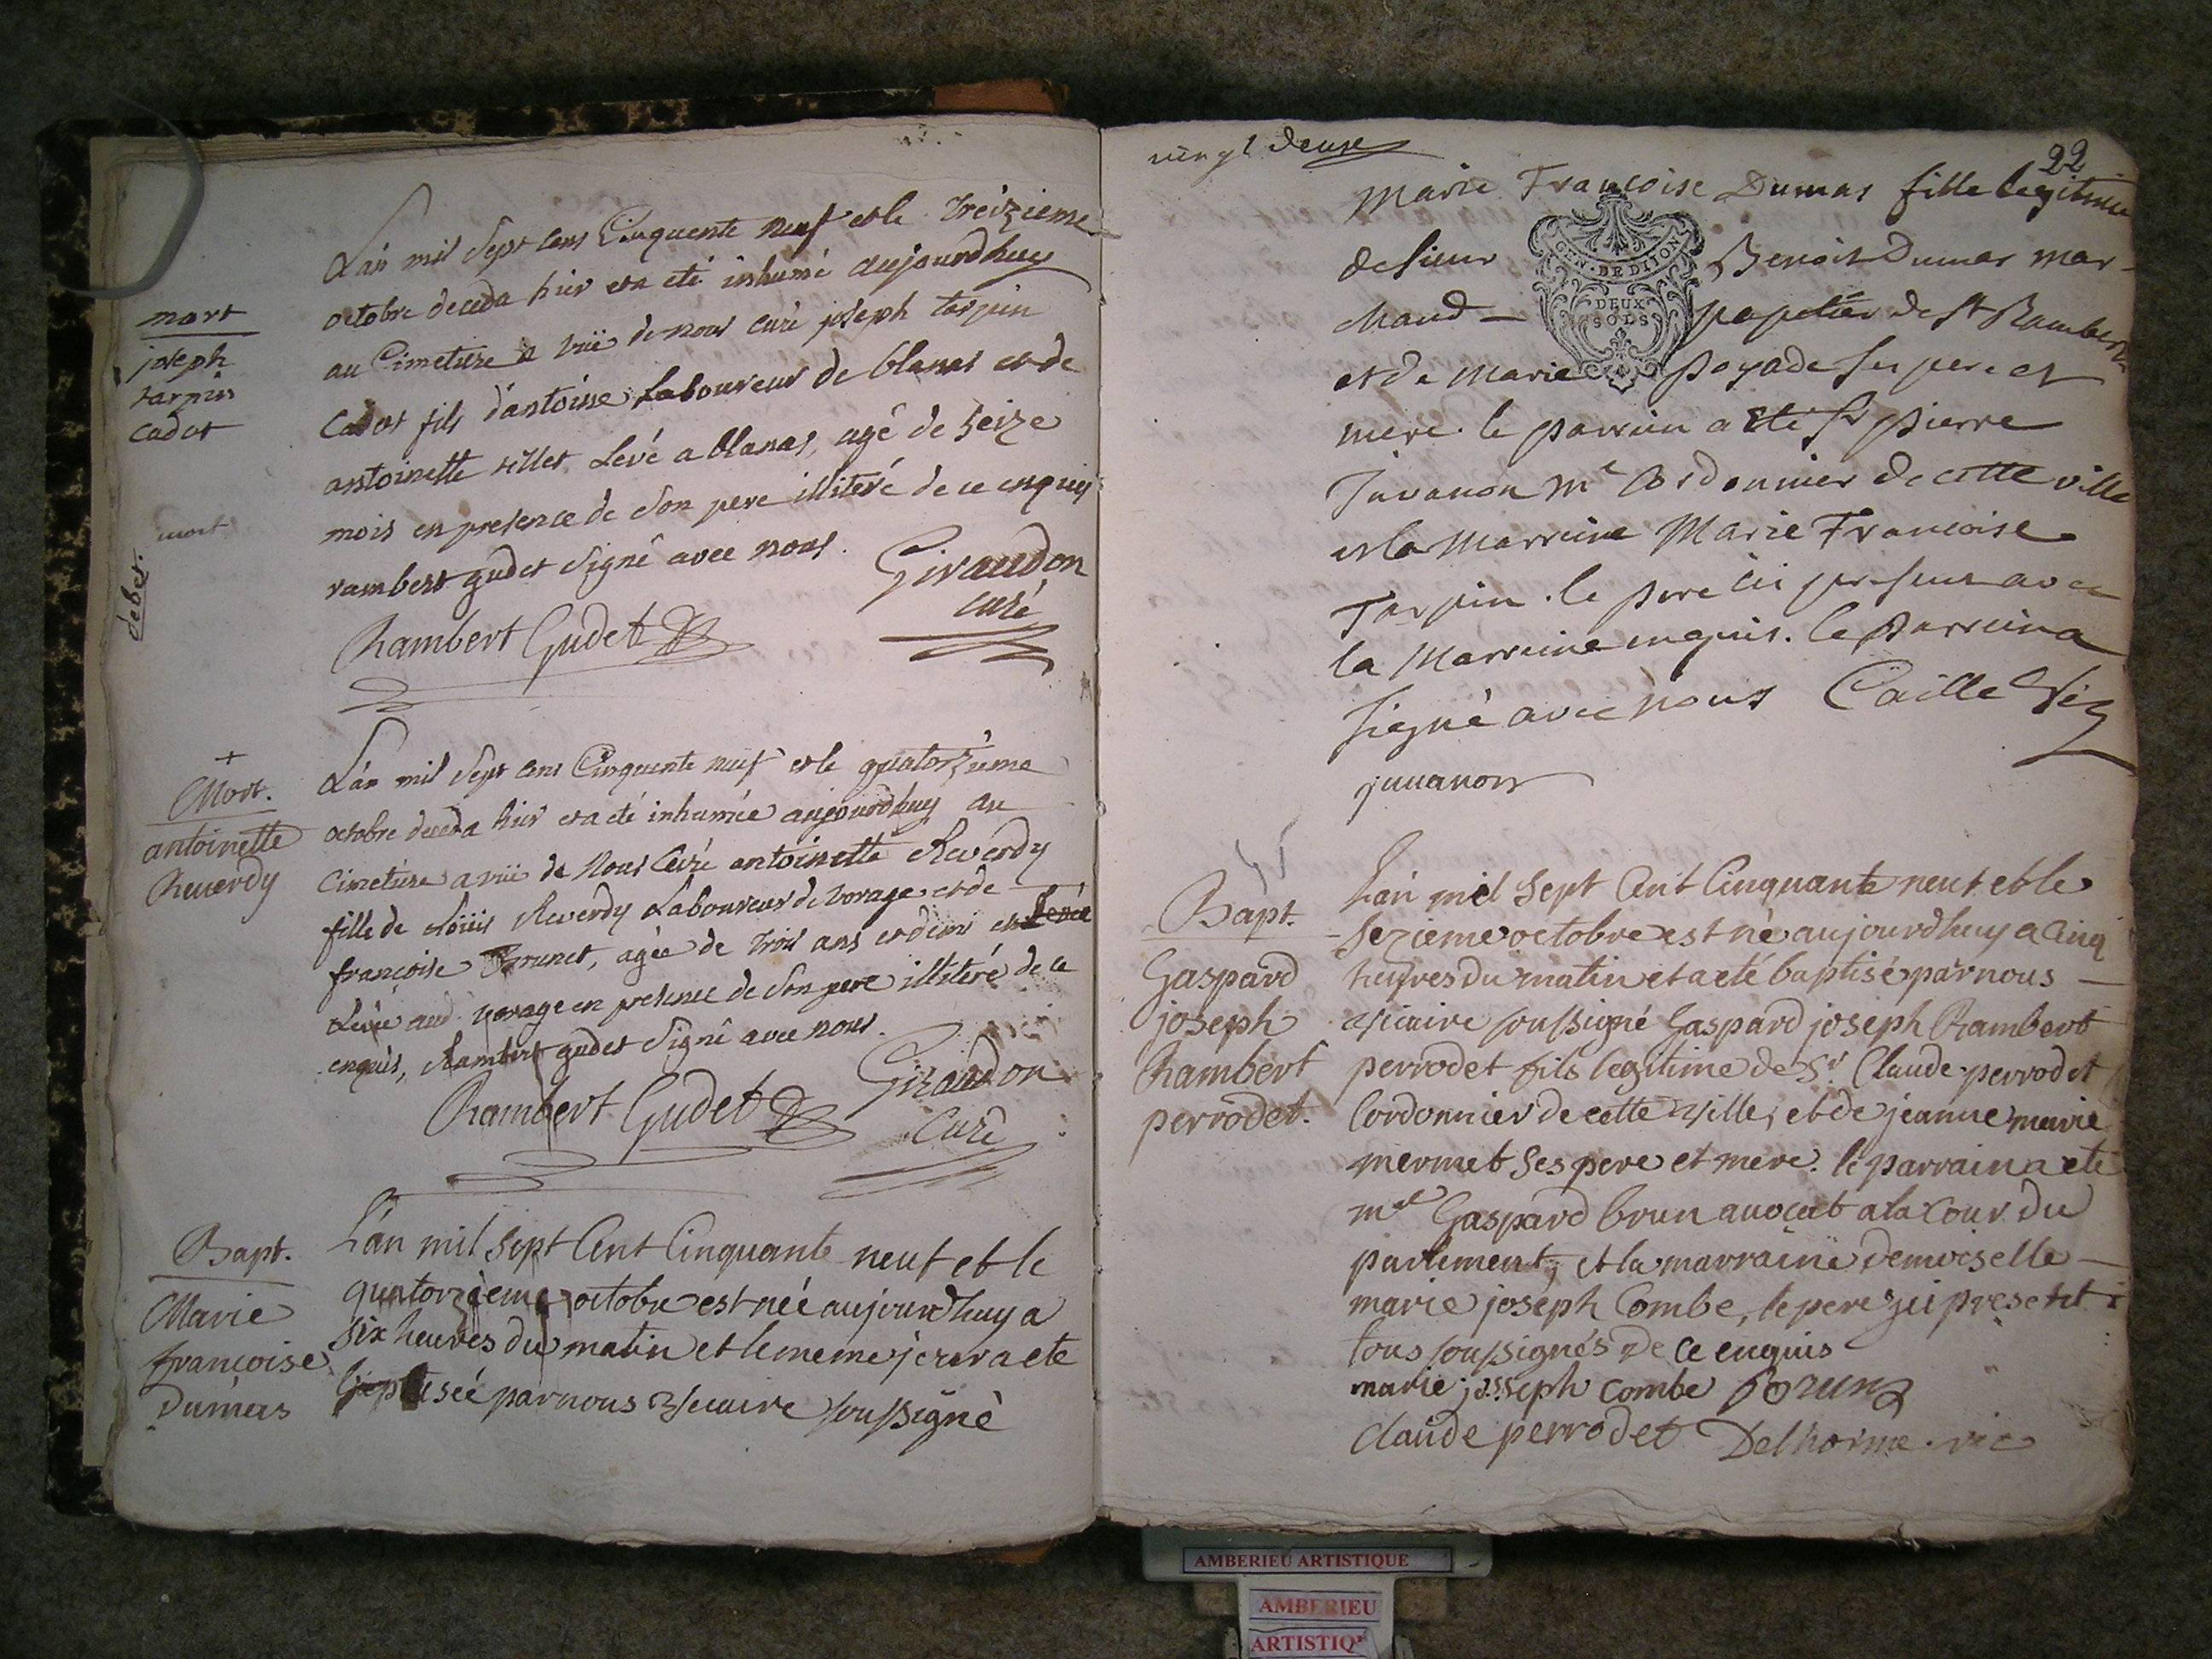 mort
joseph
tarpin
cadet
L'an mil sept cens Cinquente neuf et le treizieme
octobre deceda hier et a eté inhumé aujourdhuy
au Cimetiere a vüe de nous curé joseph tarpin
Cadet fils d'antoine Laboureur de blanas et de
antoinette tillet Levé a blanas, agé de seize
mois en presence de son pere illiteré de ce enquis
rambert gudet signé avec nous.
Giraudon
curé
Rambert Gudet
mort
debet.
+
Mort.
antoinette
Reverdy
L'an mil sept cens Cinquente neuf et le quatorzieme
octobre deceda hier et a eté inhumée aujourdhuy au
cimetiere a vüe de nous curé antoinette Reverdy
fille de Loüis Reverdy Laboureur de vorage et de
françoise Brunet, agée de trois ans et demi et
Levée aud. vorage en presence de son pere illiteré de ce
enquis, Rambert gudet signé avec nous.
Giraudon
Curé
Rambert Gudet
Bapt.
Marie
françoise
Dumas
L'an mil sept Cent Cinquante neuf et le
quatorzieme octobre est née aujourdhuy a
six heures du matin et le meme jour a ete
baptiseé par nous vicaire soussigné
vingt deuxe
22
Marie Francoise Dumas fille legitime
de sieur Benoit Dumas mar-
chand papetier de St Rambert
et de Marie poyade ses pere et
mere. le parrein a eté sr pierre
Juvanon me Cordonnier de cette ville
et la Marreine Marie Francoise
Tarpin. le pere ici present avec
la Marreine enquis. le Parrein a
signé avec nous Caille Vic
juuanon
GEN. DE DIJON
DEUX
SOLS
Bapt.
Gaspard
joseph
Rambert
perrodet.
L'an mil sept Cent Cinquante neuf et le
sezieme octobre est né aujourdhuy a Cinq
heures du matin et a eté baptisé par nous
vicaire soussigné Gaspard joseph Rambert
perrodet fils legitime de Sr Claude perrodet
Cordonnier de cette ville, et de jeanne marie
mermet ses pere et mere. le parrain a eté
me Gaspard brun auocat a la Cour du
parlement, et la marraine demoiselle
marie joseph Combe, le pere ici present
tous soussignés de ce enquis
marie josseph combe Brun
claude perrodet Delhorme. vic
AMBERIEU ARTISTIQUE
AMBERIEU
ARTISTIQ